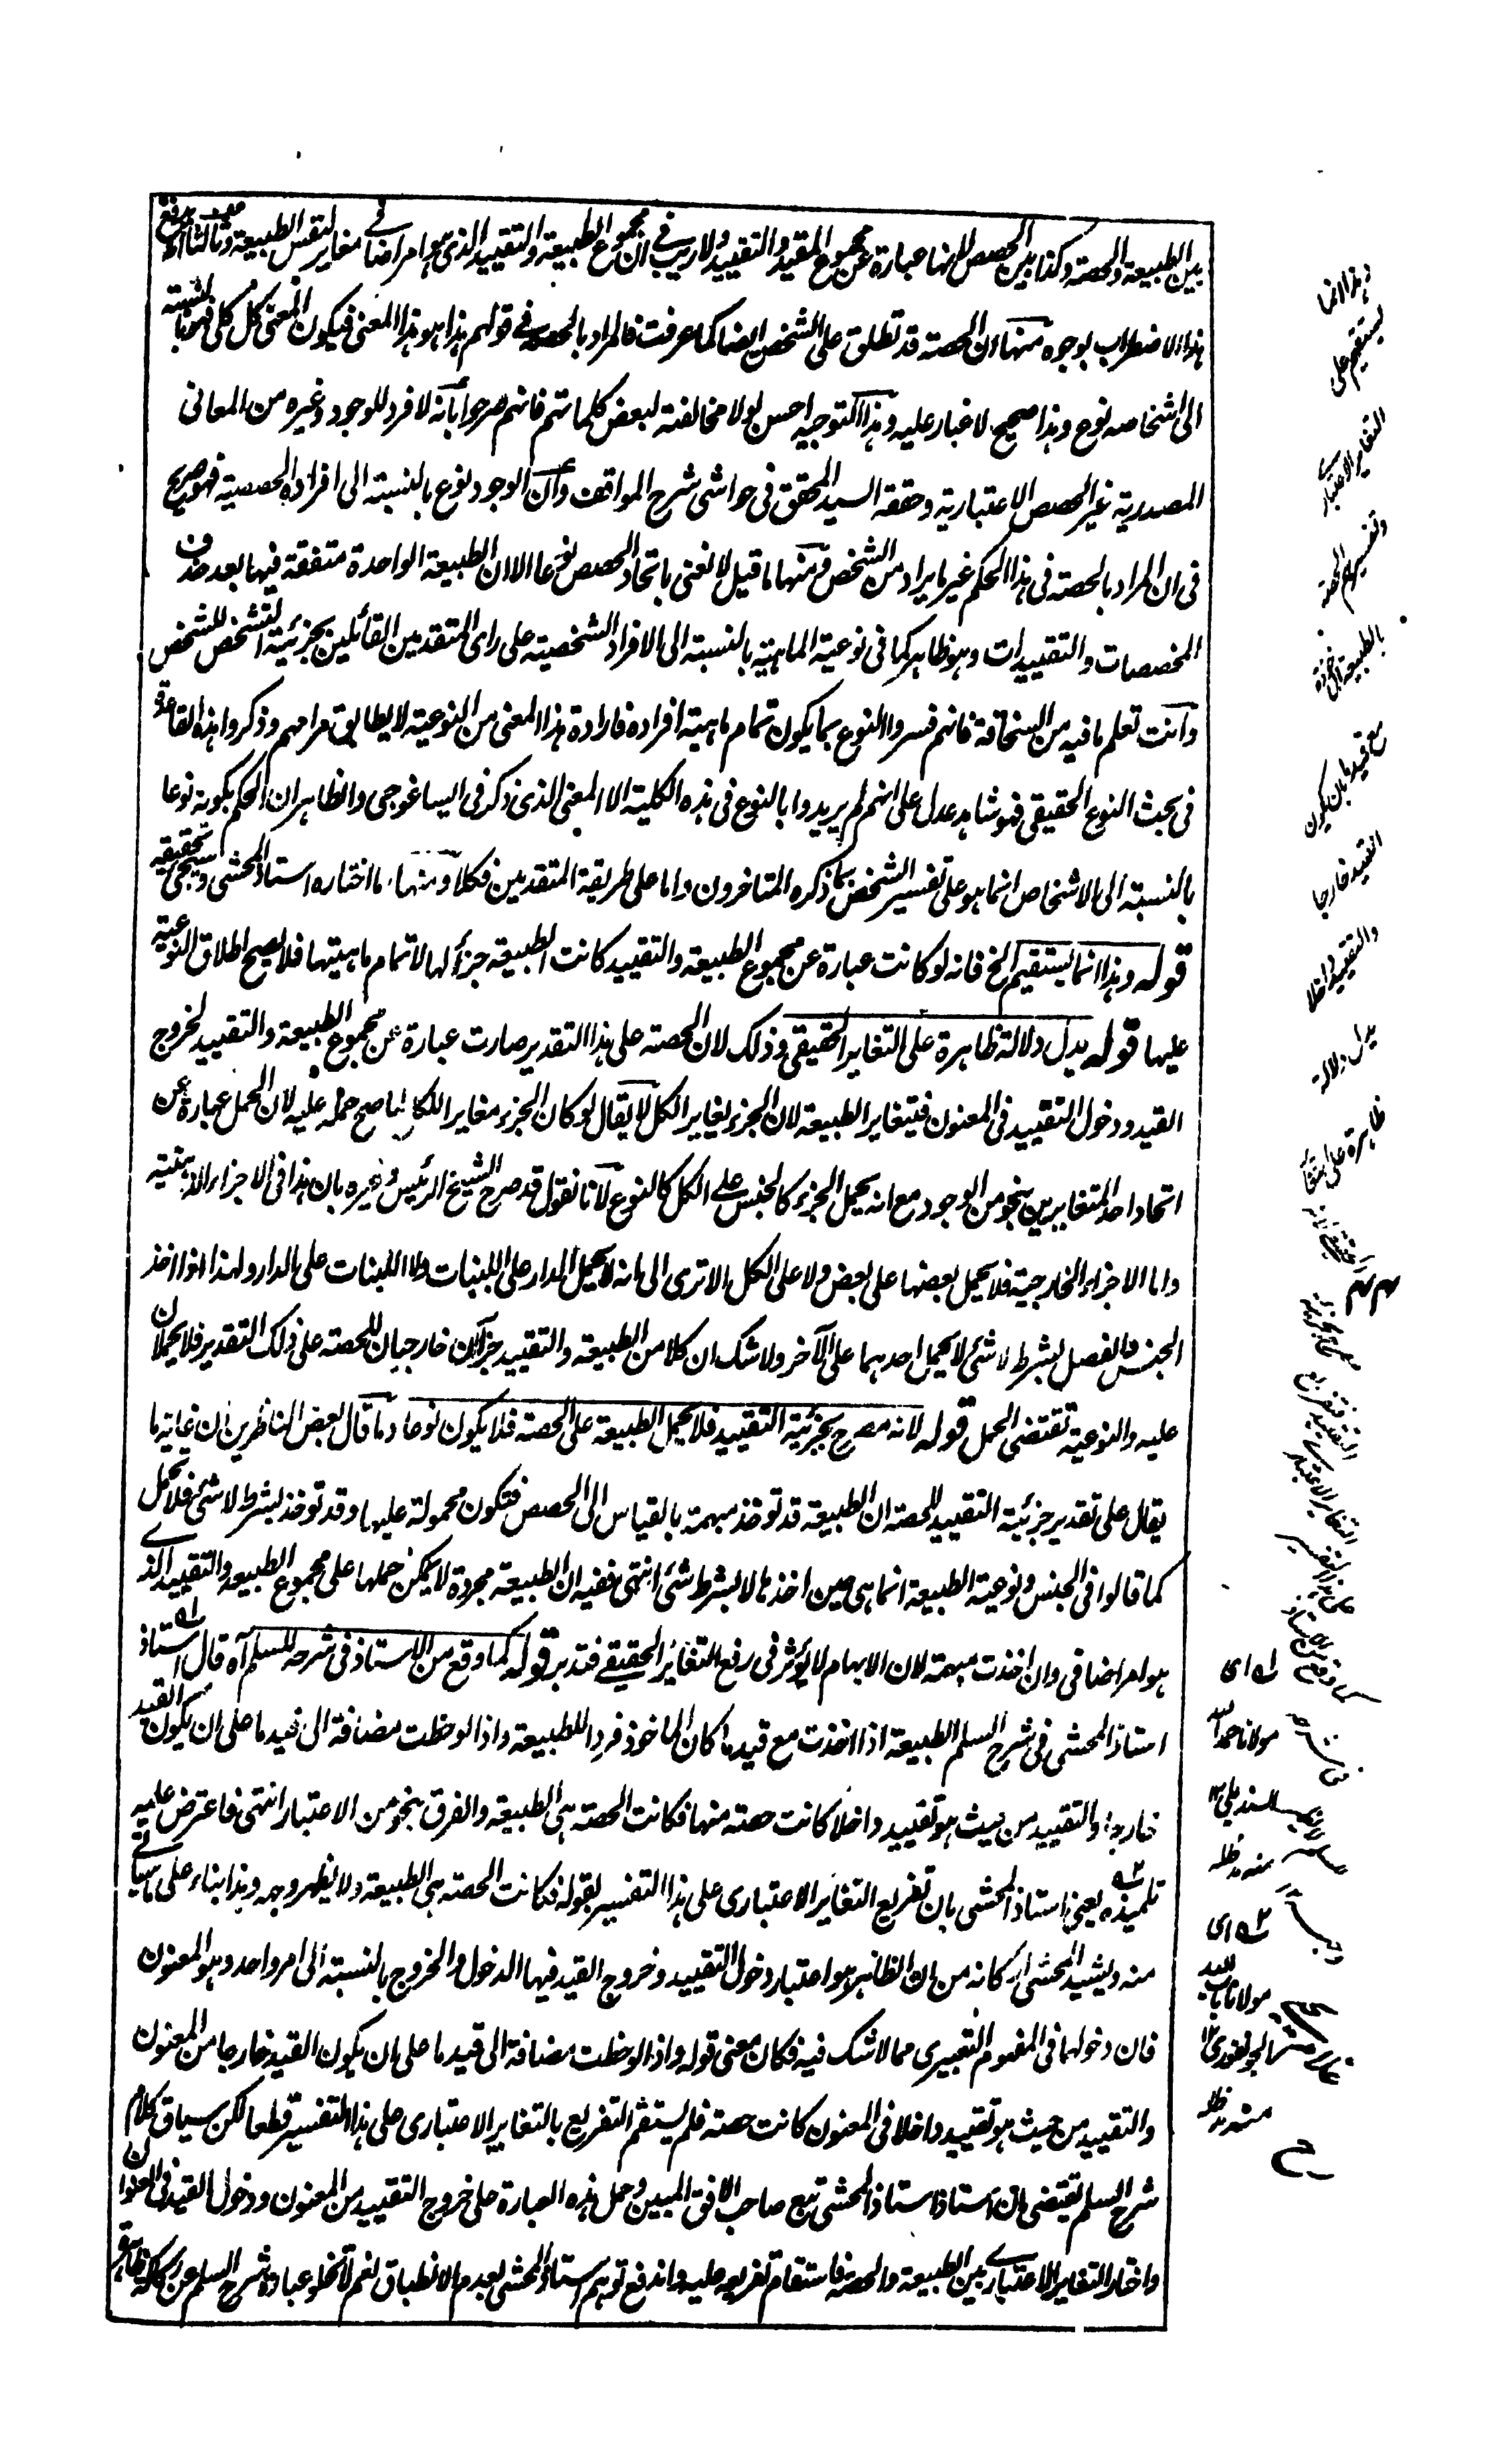 بين الطبيعة والحصة وكذا بين الحصص لانها عبارة عن مجموع المقيد والتقييد ولا ريب في ان مجموع الطبيعة والتقييد الذي هو امر اضافي مغاير لنفس الطبيعة وثالثها انه يدفع
هذا الاضطراب بوجوه منها ان الحصة قد تطلق على الشخص ايضا كما عرفت فالمراد بالحصة في قولهم هذا هو هذا المعنى فيكون المعنى كل كلي فهو بالنسبة
الى اشخاصه نوع وهذا صحيح لا غبار عليه وهذا التوجيه احسن لولا مخالفته لبعض كلماتهم فانهم صرحوا بانه لا فرد للوجود وغيره من المعاني
المصدرية غير الحصص الاعتبارية وحققه السيد المحقق في حواشي شرح المواقف وان الوجود نوع بالنسبة الى افراده الحصصية فهو صريح
في ان المراد بالحصة في هذا الحكم غير ما يراد من الشخص ومنها ما قيل لا نعني باتحاد الحصص نوعا الا ان الطبيعة الواحدة متفقة فيها بعد حذف
المخصصات والتقييدات وهو ظاهر كما في نوعية الماهية بالنسبة الى الافراد الشخصية على راى المتقدمين القائلين بجزئية التشخص للشخص
وانت تعلم ما فيه من السخافة فانهم فسروا النوع بما يكون تمام ماهية افراده فارادة هذا المعنى من النوعية لا يطابق مرامهم وذكروا هذه القاعدة
في بحث النوع الحقيقي فهو شاهد عدل على انهم لم يريدوا بالنوع في هذه الكلية الا المعنى الذي ذكر في ايساغوجي والظاهر ان الحكم بكونه نوعا
بالنسبة الى الاشخاص انما هو على تفسير الشخص بما ذكره المتاخرون واما على طريقة المتقدمين فكلا ومنها ما اختاره استاذ المحشي وسيجئ تحقيقه
قوله وهذا انما يستقيم الخ فانه لو كانت عبارة عن مجموع الطبيعة والتقييد كانت الطبيعة جزأ لها لا تمام ماهيتها فلا يصح اطلاق النوعية
عليها قوله يدل دلالة ظاهرة على التغاير الحقيقي وذلك لان الحصة على هذا التقدير صارت عبارة عن مجموع الطبيعة والتقييد لخروج
القيد ودخول التقييد في المعنون فيتغاير الطبيعة لان الجزء يغاير الكل لا يقال لو كان الجزء مغايرا للكل لما صح حمله عليه لان الحمل عبارة عن
اتحاد احد المتغايرين بنحو من الوجود مع انه يحمل الجزء كالجنس على الكل كالنوع لانا نقول قد صرح الشيخ الرئيس وغيره بان هذا في الاجزاء الذهنية
واما الاجزاء الخارجية فلا يحمل بعضها على بعض ولا على الكل الا ترى الى انه لا يحمل الدار على اللبنات ولا اللبنات على الدار ولهذا اذا اخذ
الجنس والفصل بشرط لا شئ لا يحمل احدهما على الآخر ولا شك ان كلا من الطبيعة والتقييد جزآن خارجيان للحصة على ذلك التقدير فلا يحملان
عليه والنوعية تقتضي الحمل قوله لانه مصرح بجزئية التقييد فلا يحمل الطبيعة على الحصة فلا يكون نوعا وما قال بعض الناظرين ان غاية ما
يقال على تقدير جزئية التقييد للحصة ان الطبيعة قد توخذ مبهمة بالقياس الى الحصص فتكون محمولة عليها وقد توخذ بشرط لا شئ فلا تحمل
كما قالوا في الجنس ونوعية الطبيعة انما هي حين اخذها لا بشرط شئ انتهى ففيه ان الطبيعة مجردة لا يمكن حملها على مجموع الطبيعة والتقييد الذي
هو امر اضافي وان اخذت مبهمة لان الابهام لا يؤثر في رفع التغاير الحقيقي فتدبر قوله كما وقع من الاستاذ في شرحه للسلم آه قال استاذ
استاذ المحشي في شرح السلم الطبيعة اذا اخذت مع قيد ما كان الماخوذ فردا للطبيعة واذا لوحظت مضافة الى قيد ما على ان يكون القيد
خارجا والتقييد من حيث هو تقييد داخلا كانت حصة منها فكانت الحصة هي الطبيعة والفرق بنحو من الاعتبار انتهى فاعترض عليه
تلميذه يعني استاذ المحشي بان تفريع التغاير الاعتباري على هذا التفسير بقوله فكانت الحصة هي الطبيعة ولا يظهر وجهه وهذا بناء على ما سياتي
منه ويشيد المحشي اركانه من ان الظاهر هو اعتبار دخول التقييد وخروج القيد فيها الدخول والخروج بالنسبة الى امر واحد وهو المعنون
فان دخولهما في المفهوم التعبيري مما لا شك فيه فكان معنى قوله واذا لوحظت مضافة الى قيد ما على ان يكون القيد خارجا من المعنون
والتقييد من حيث هو تقييد داخلا في المعنون كانت حصة فلم يستقم التفريع بالتغاير الاعتباري على هذا التفسير قطعا لكن سياق كلام
شرح السلم يقتضي ان استاذ استاذ المحشي تبع صاحب الافق المبين وحمل هذه العبارة على خروج التقييد من المعنون ودخول القيد في العنوان
واختار التغاير الاعتباري بين الطبيعة والحصة فاستقام تفريعه عليه واندفع توهم استاذ المحشي بعدم الانطباق نعم لا تخلو عبارة شرح السلم عن ركاكة
وهذا انما
يستقيم على
التغاير الاعتباري
وتفسيرهم الحصة
بالطبيعة الماخوذة
مع قيد ما بان يكون
القيد خارجا
والتقييد داخلا
يدل دلالة
ظاهرة على التغاير
الحقيقي لانه
مصرح بجزئية
التقييد
له اى
مولانا حمد الله
السنديلي ١٢
منه مد ظله
٢ه اى
مولانا باب الله
الجونفوري ١٢
منه مد ظله